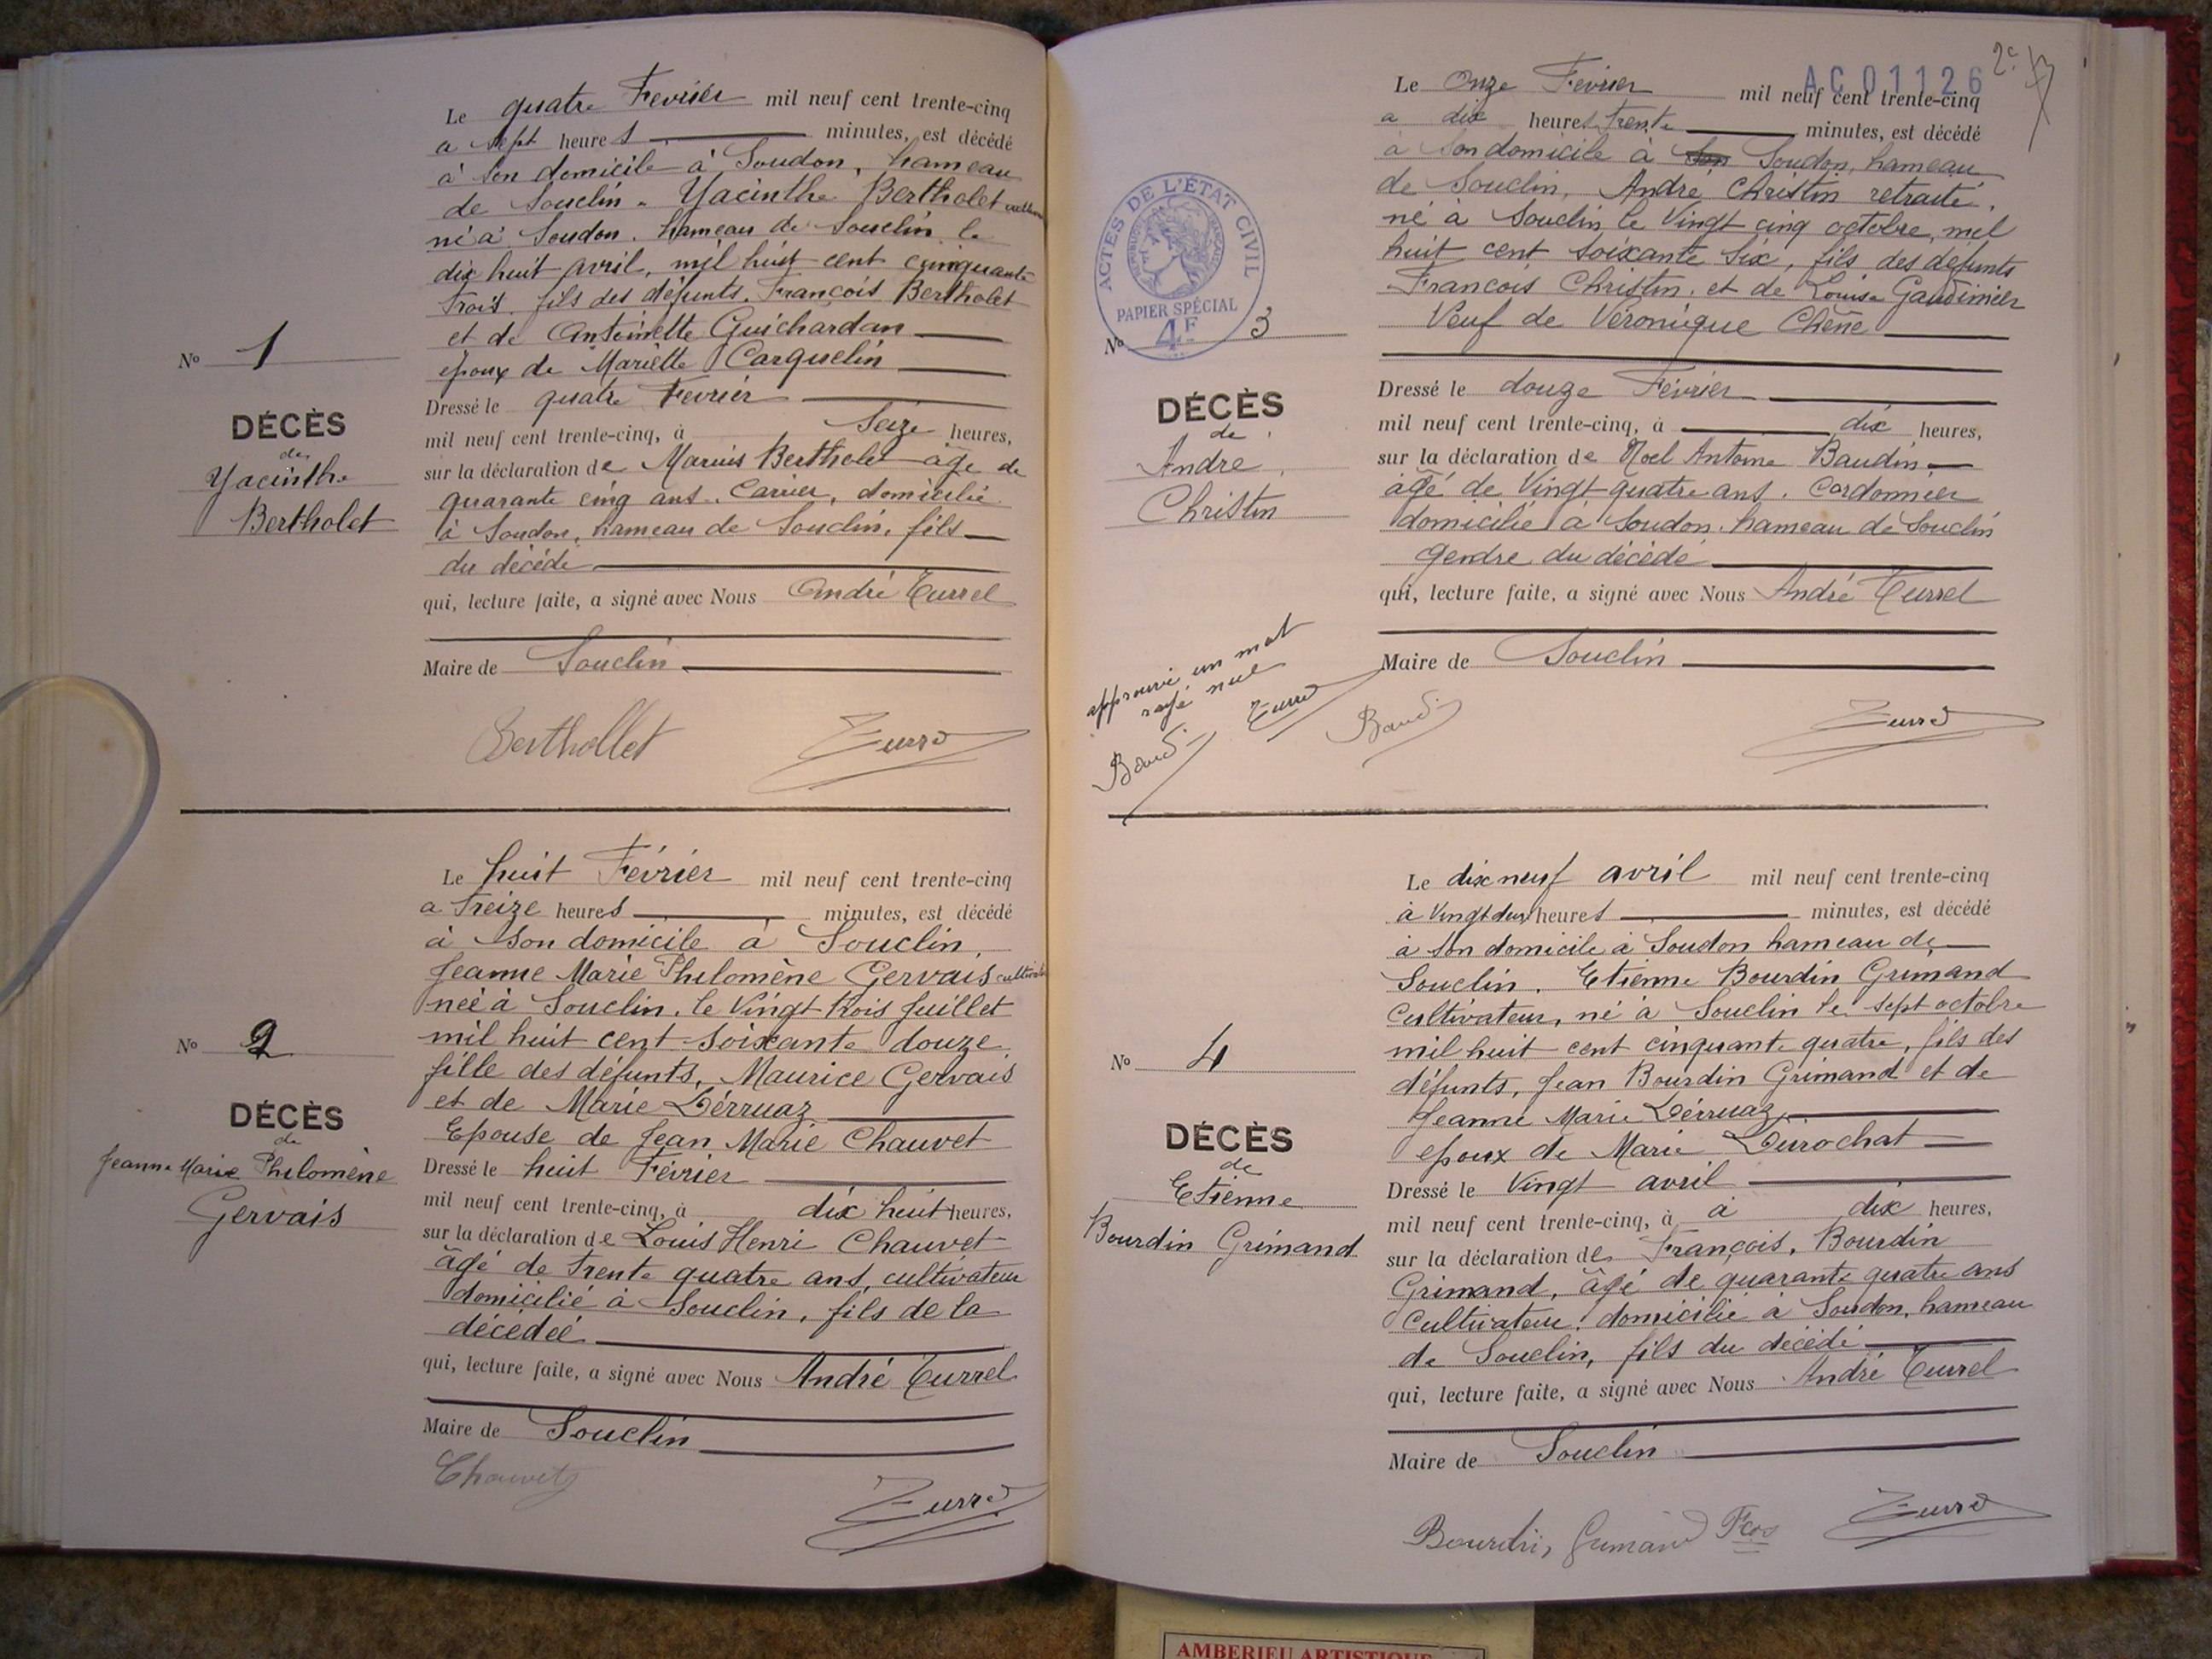 Le quatre Fevrier mil neuf cent trente-cinq
a sept heures minutes, est décédé
à son domicile à Soudon, hameau
de Souclin. Yacinthe Bertholet
né à Soudon. hameau de Souclin le
dix huit avril, mil huit cent cinquante
trois. fils des défunts. François Bertholet
et de Antoinette Guichardan
époux de Mariette Carquelin
Dressé le quatre Fevrier
mil neuf cent trente-cinq, à Seize heures,
sur la déclaration de Marius Bertholet âge de
quarante cinq ans. Carrier, domicilié
à Soudon, hameau de Souclin, fils
du décédé
qui, lecture faite, a signé avec Nous André Turrel
Maire de Souclin
Berthollet Turrel
No 1
DÉCÈS
de
Yacinthe
Bertholet
Le huit Février mil neuf cent trente-cinq
a treize heures minutes, est décédé
à son domicile à Souclin,
Jeanne Marie Philomène Gervais
née à Souclin, le Vingt trois Juillet
mil huit cent soixante douze
fille des défunts, Maurice Gervais
et de Marie Dérruaz
Epouse de Jean Marie Chauvet
Dressé le huit Février
mil neuf cent trente-cinq, à dix huit heures,
sur la déclaration de Louis Henri Chauvet
âgé de trente quatre ans, cultivateur
domicilié à Souclin, fils de la
décédée
qui, lecture faite, a signé avec Nous André Turrel
Maire de Souclin
Chauvet Turrel
No 2
DÉCÈS
de
Jeanne Marie Philomène
Gervais
AC01126
2e
Le Onze Fevrier mil neuf cent trente-cinq
a dix heures trente minutes, est décédé
à son domicile à Son Soudon, hameau
de Souclin, André Christin retraité,
né à Souclin le Vingt cinq octobre, mil
huit cent soixante six, fils des défunts
François Christin, et de Louise Gaudimier
Veuf de Véronique Chêne
Dressé le douze Février
mil neuf cent trente-cinq, à dix heures,
sur la déclaration de Noel Antoine Baudin
âgé de Vingt quatre ans. Cordonnier
domicilié à Soudon. hameau de Souclin
gendre du décédé
qui, lecture faite, a signé avec Nous André Turrel
Maire de Souclin
Baudin Turrel
ACTES DE L'ÉTAT CIVIL
RÉPUBLIQUE FRANÇAISE
PAPIER SPÉCIAL
4F
No 3
DÉCÈS
de
André
Christin
approuvé un mot
rayé nul
Baudin Turrel
Le dix neuf avril mil neuf cent trente-cinq
à Vingt deux heures minutes, est décédé
à son domicile à Soudon hameau de
Souclin. Etienne Bourdin Grimand
Cultivateur, né à Souclin le sept octobre
mil huit cent cinquante quatre, fils des
défunts, Jean Bourdin Grimand et de
Jeanne Marie Dérruaz
epoux de Marie Durochat
Dressé le Vingt avril
mil neuf cent trente-cinq, à à dix heures,
sur la déclaration de François, Bourdin
Grimand, âgé de quarante quatre ans
Cultivateur, domicilié à Soudon, hameau
de Souclin, fils du décédé
qui, lecture faite, a signé avec Nous André Turrel
Maire de Souclin
Bourdin Grimand Fcois Turrel
No 4
DÉCÈS
de
Etienne
Bourdin Grimand
AMBERIEU ARTISTIQUE